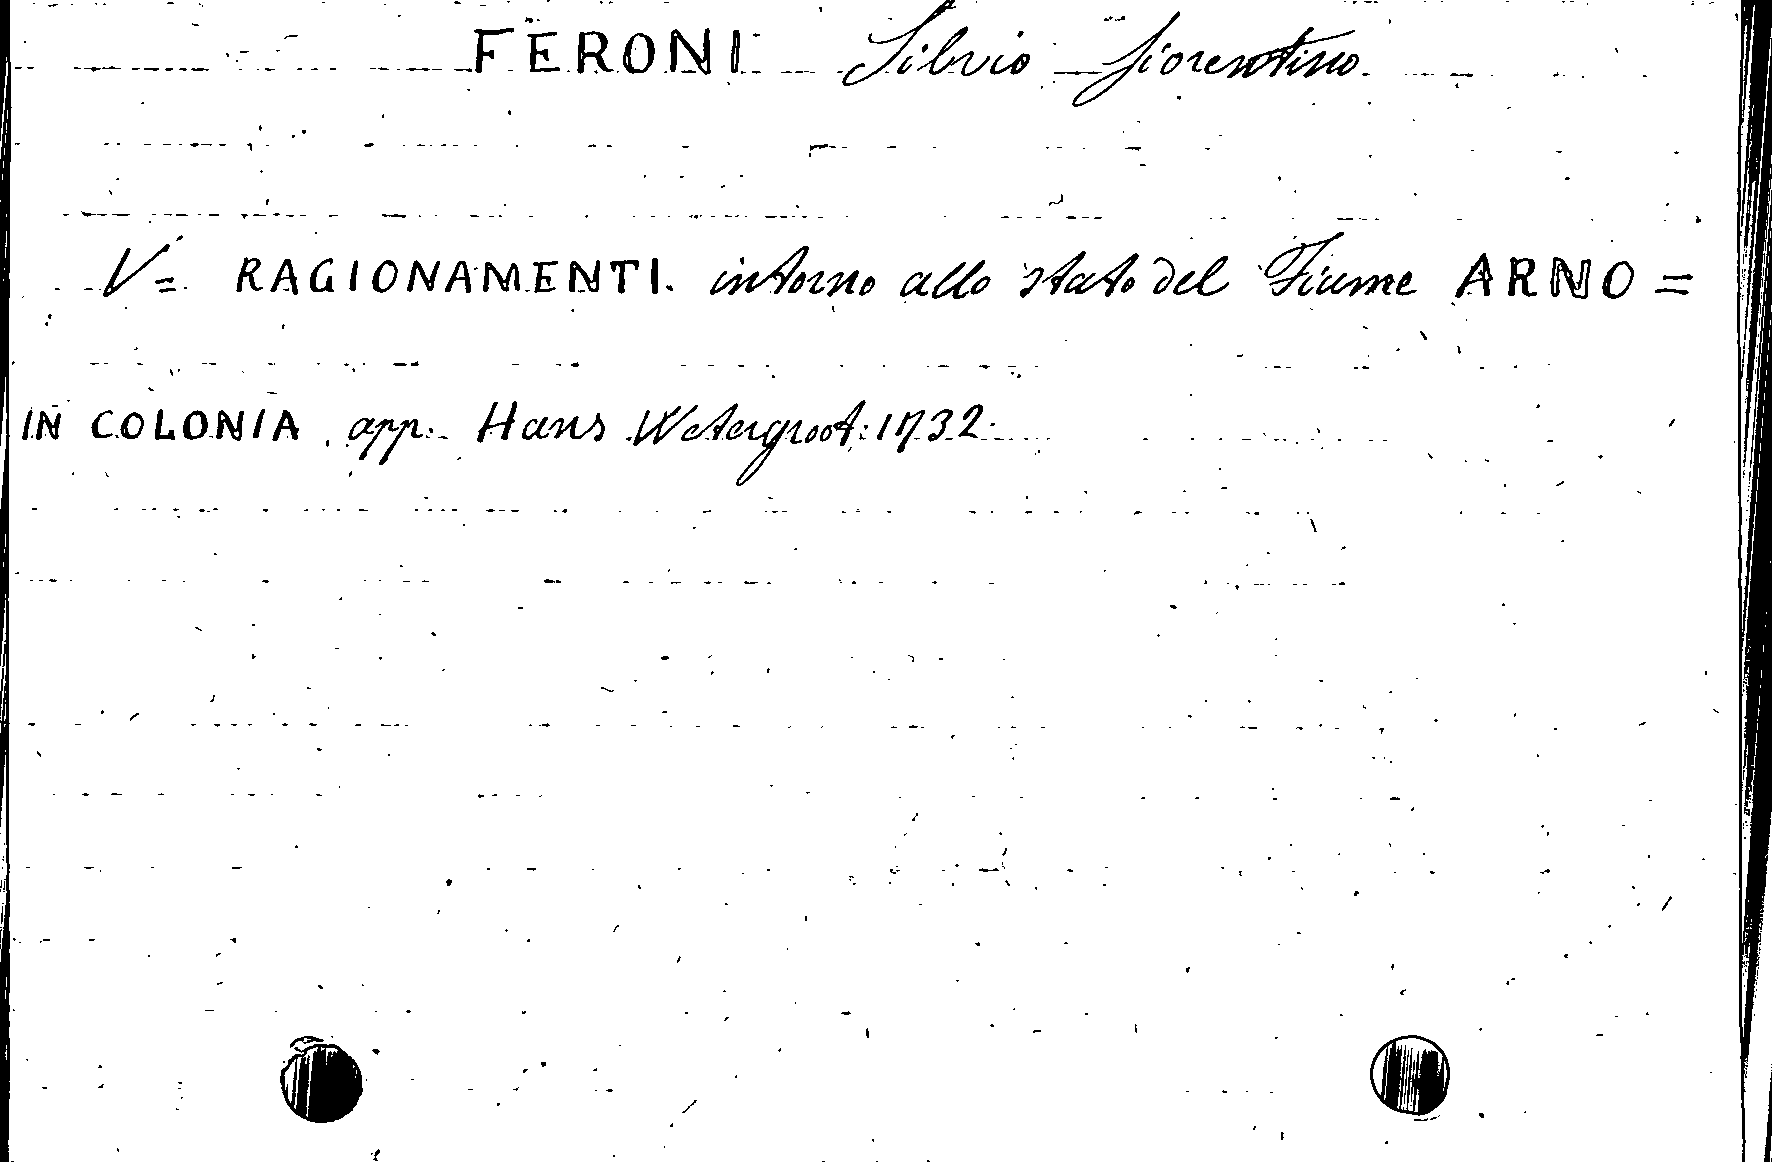 FERONI Silvio fiorentino
V= RAGIONAMENTI. intorno allo stato del Fiume ARNO =
IN COLONIA app. Hans Wetergroot: 1732